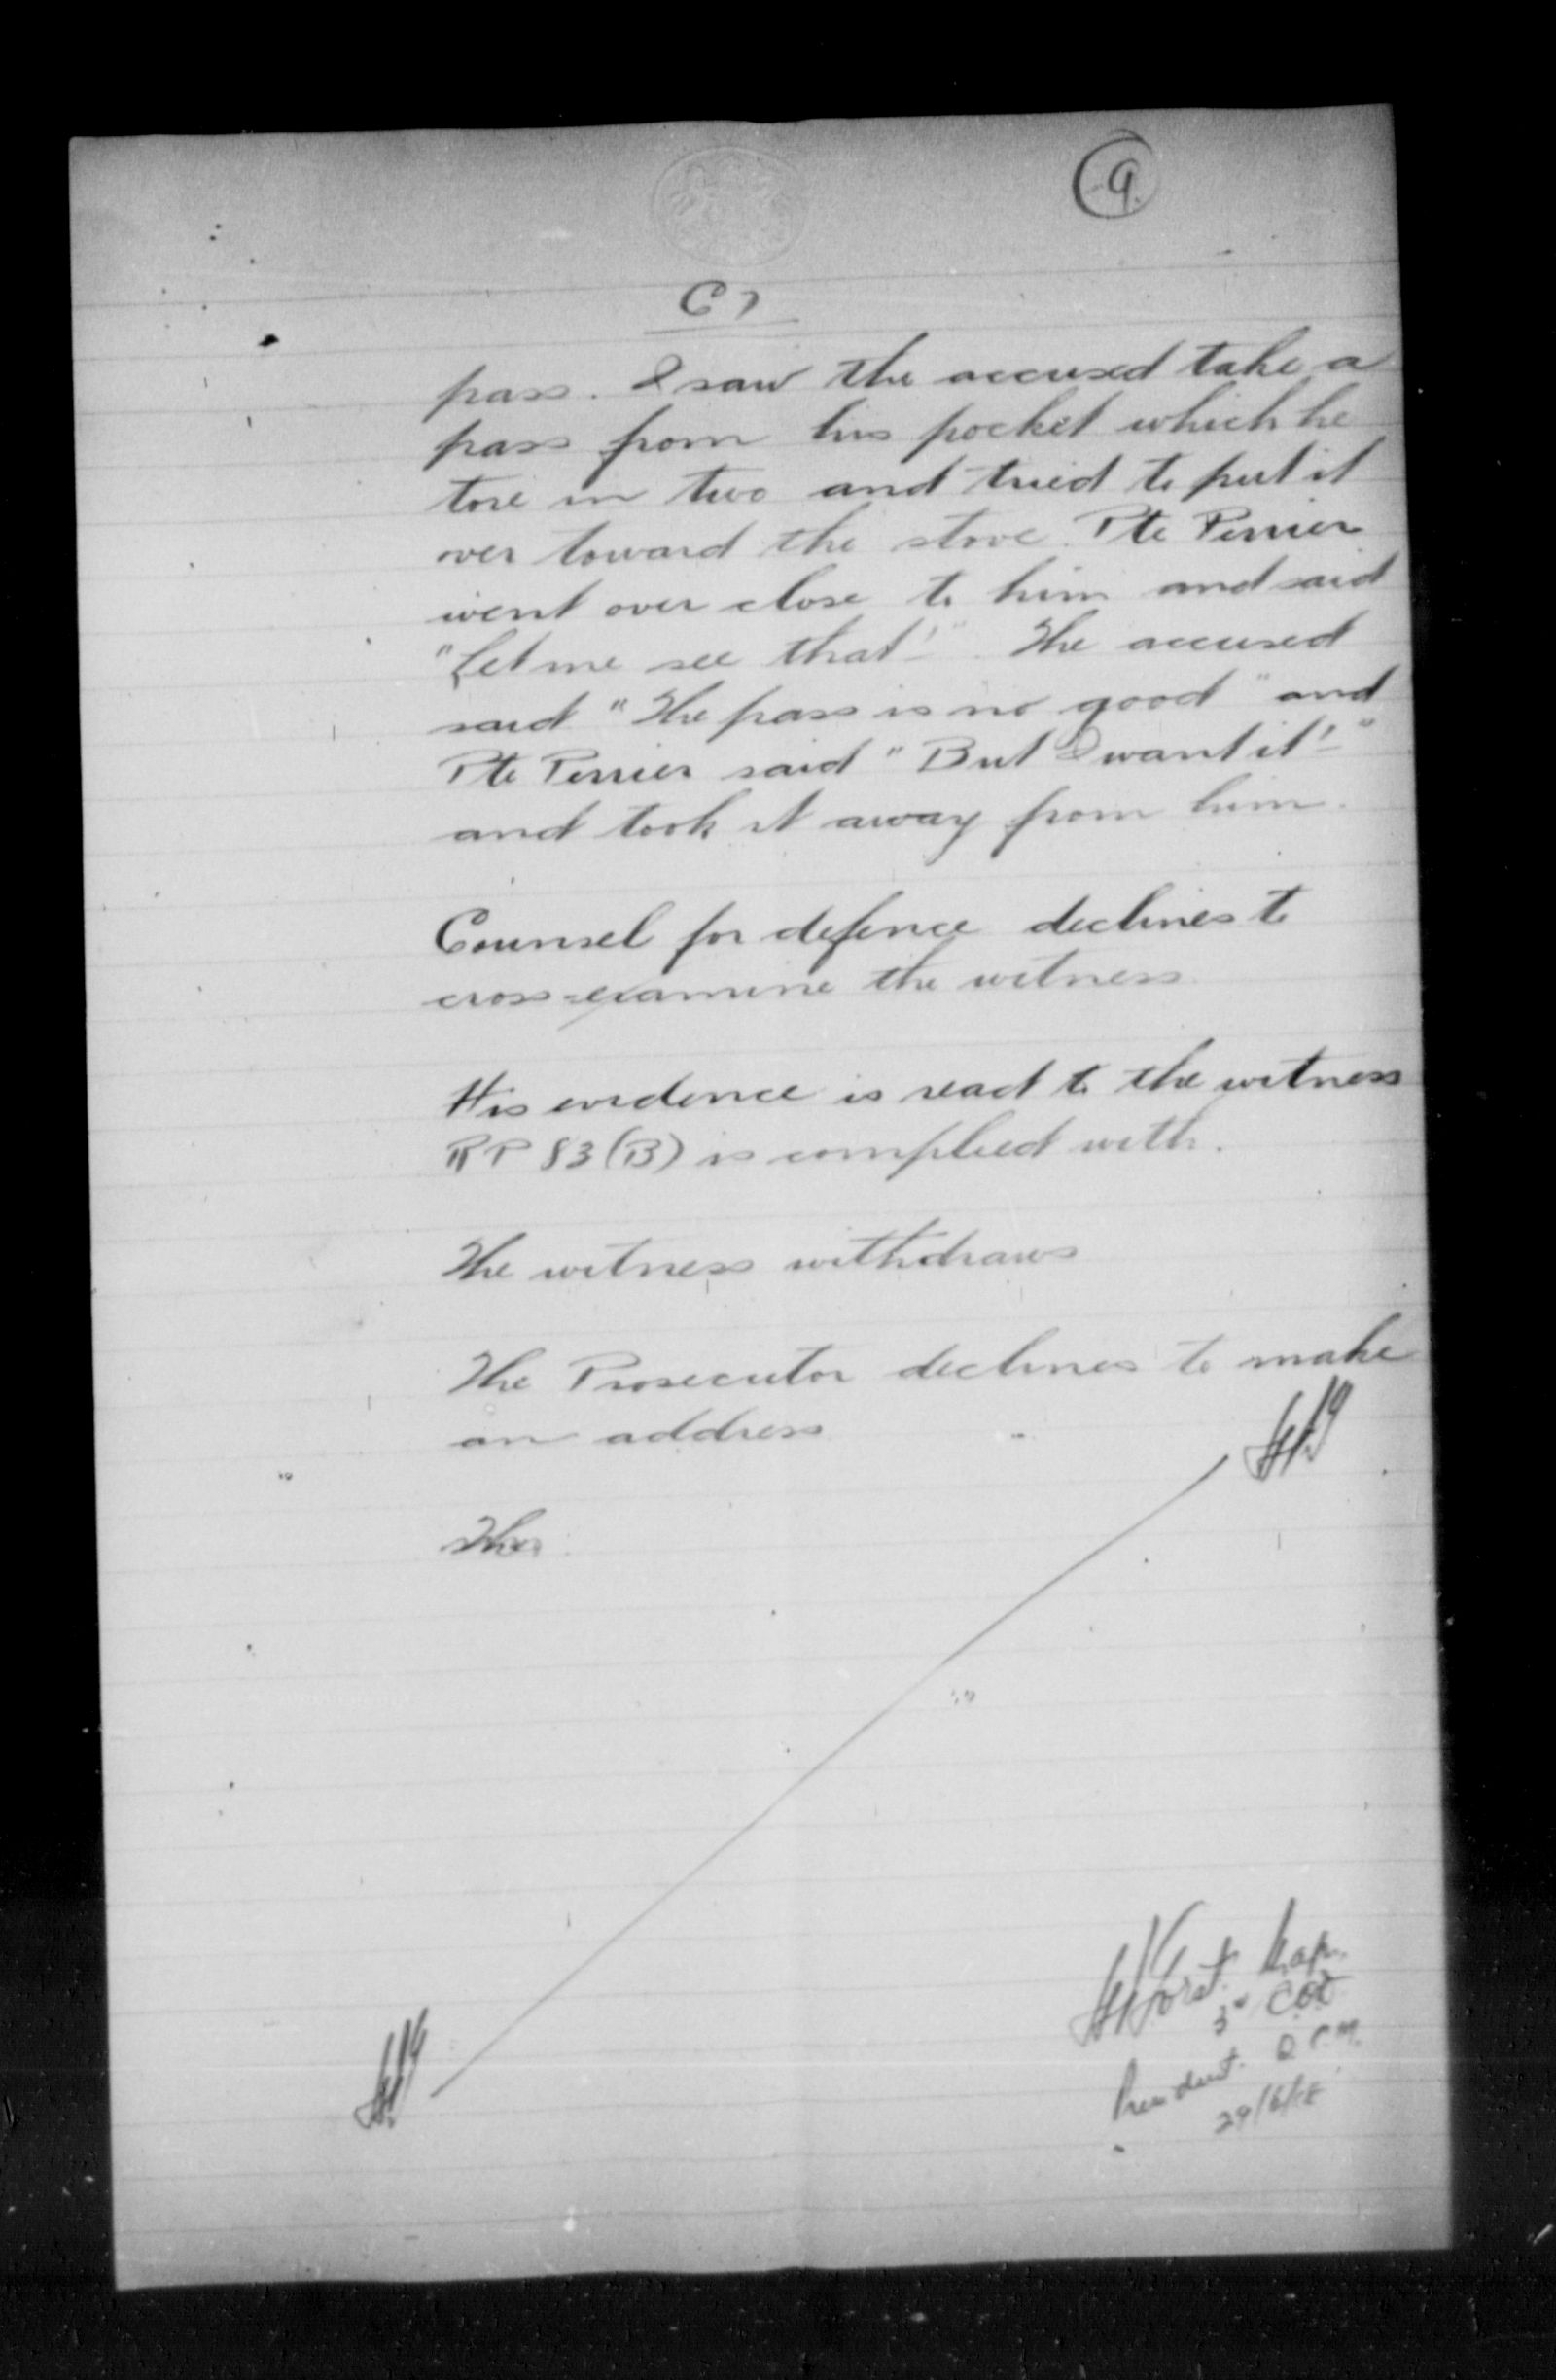 9.
C7
pass. I saw the accused take a
pass from his pocket which he
tore in two and tried to put it
over toward the stove. Pte Perrier
went over close to him and said
"Let me see that!" The accused
said "The pass is no good" and
Pte Perrier said "But I want it!"
and took it away from him.
Counsel for defence declines to
cross-examine the witness
His evidence is read to the witness
RP 83(B) is complied with.
The witness withdraws
The Prosecutor declines to make
an address
The
President. D.C.M.
29/6/18